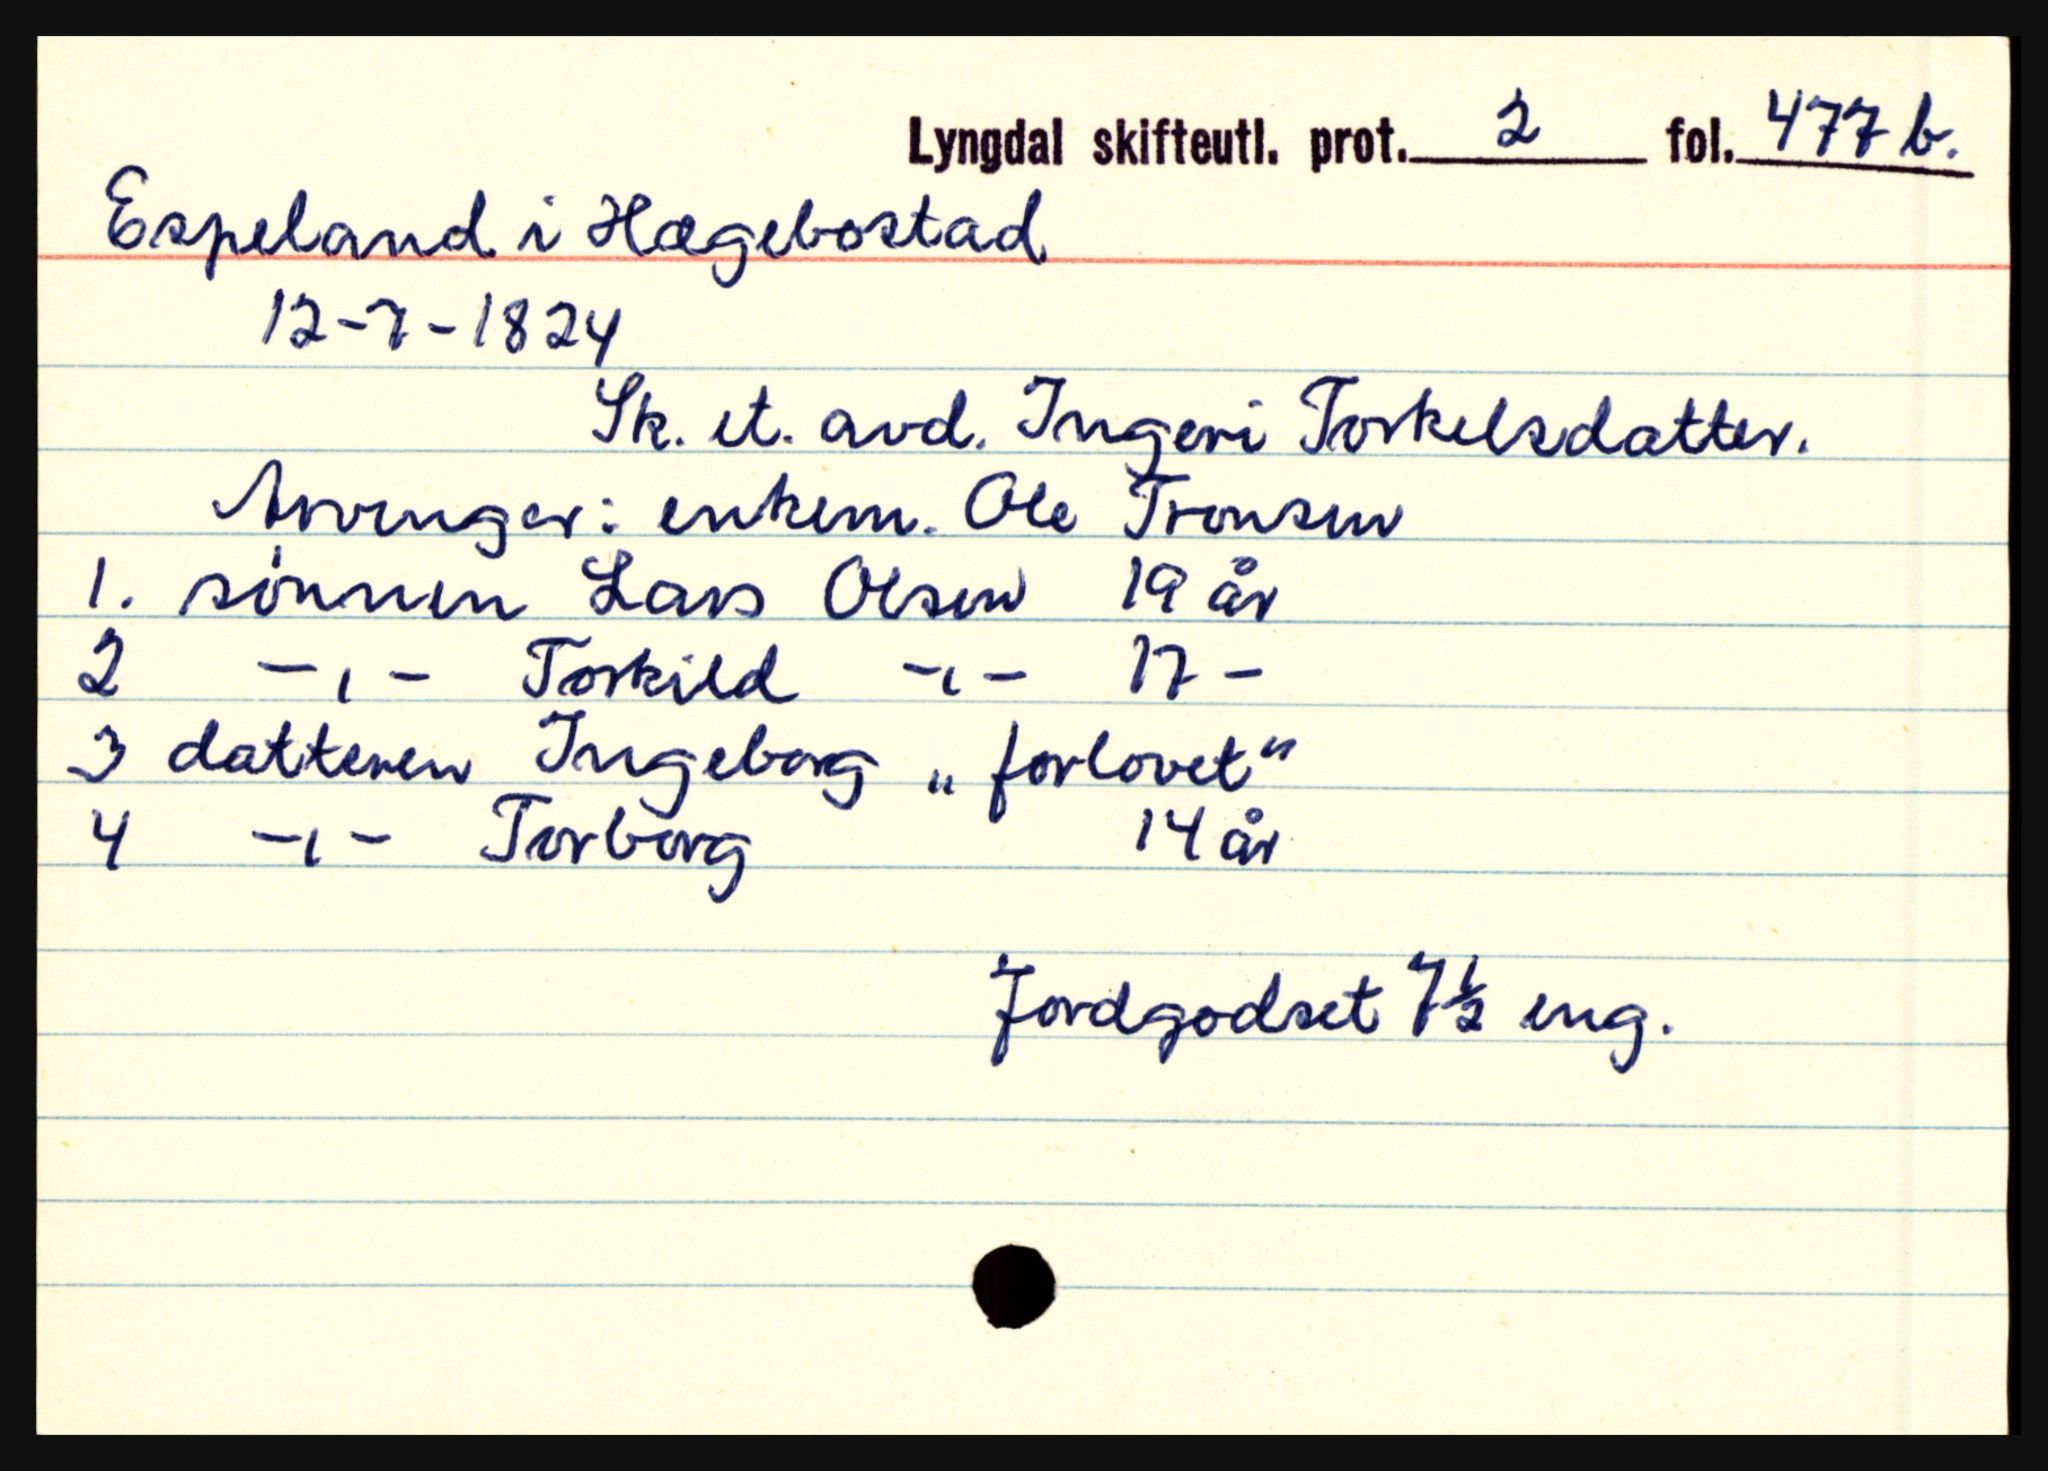 Lyngdal skifteutl. prot. 2 fol. 477 b.
Espeland i Hægebostad
12-7-1824
Sk. et. avd. Ingeri Torkelsdatter.
Arvinger: enkem. Ole Tronsen
1. sønnen Lars Olsen 19 år
2 -,- Torkild -,- 17 -
3 datteren Ingeborg „forlovet"
4 -,- Torborg 14 år
Jordgodset 7½ eng.